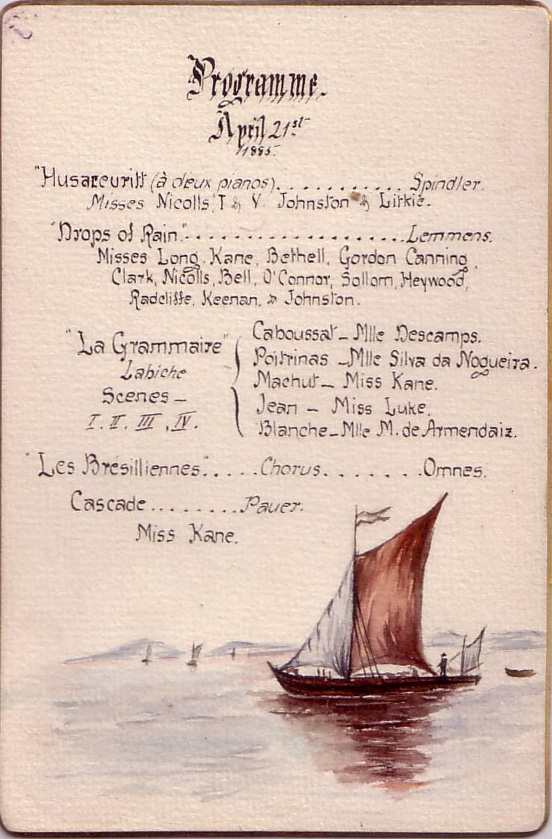 Programme.
April 21st
1885.
"Husarenritt (à deux pianos)............Spindler.
Misses Nicolls, T & V Johnston & Litkie.
"Drops of Rain"......................Lemmens.
Misses Long, Kane, Bethell, Gordon Canning,
Clark, Nicolls, Bell, O'Connor, Sollom, Heywood,
Radcliffe, Keenan, & Johnston.
"La Grammaire"
Labiche
Scenes –
I. II. III, IV.
Caboussat – Mlle Descamps.
Poitrinas – Mlle Silva da Nogueira.
Machut – Miss Kane.
Jean – Miss Luke.
Blanche – Mlle M. de Armendaiz.
"Les Brésilliennes".....Chorus.......Omnes.
Cascade........Pauer.
Miss Kane.